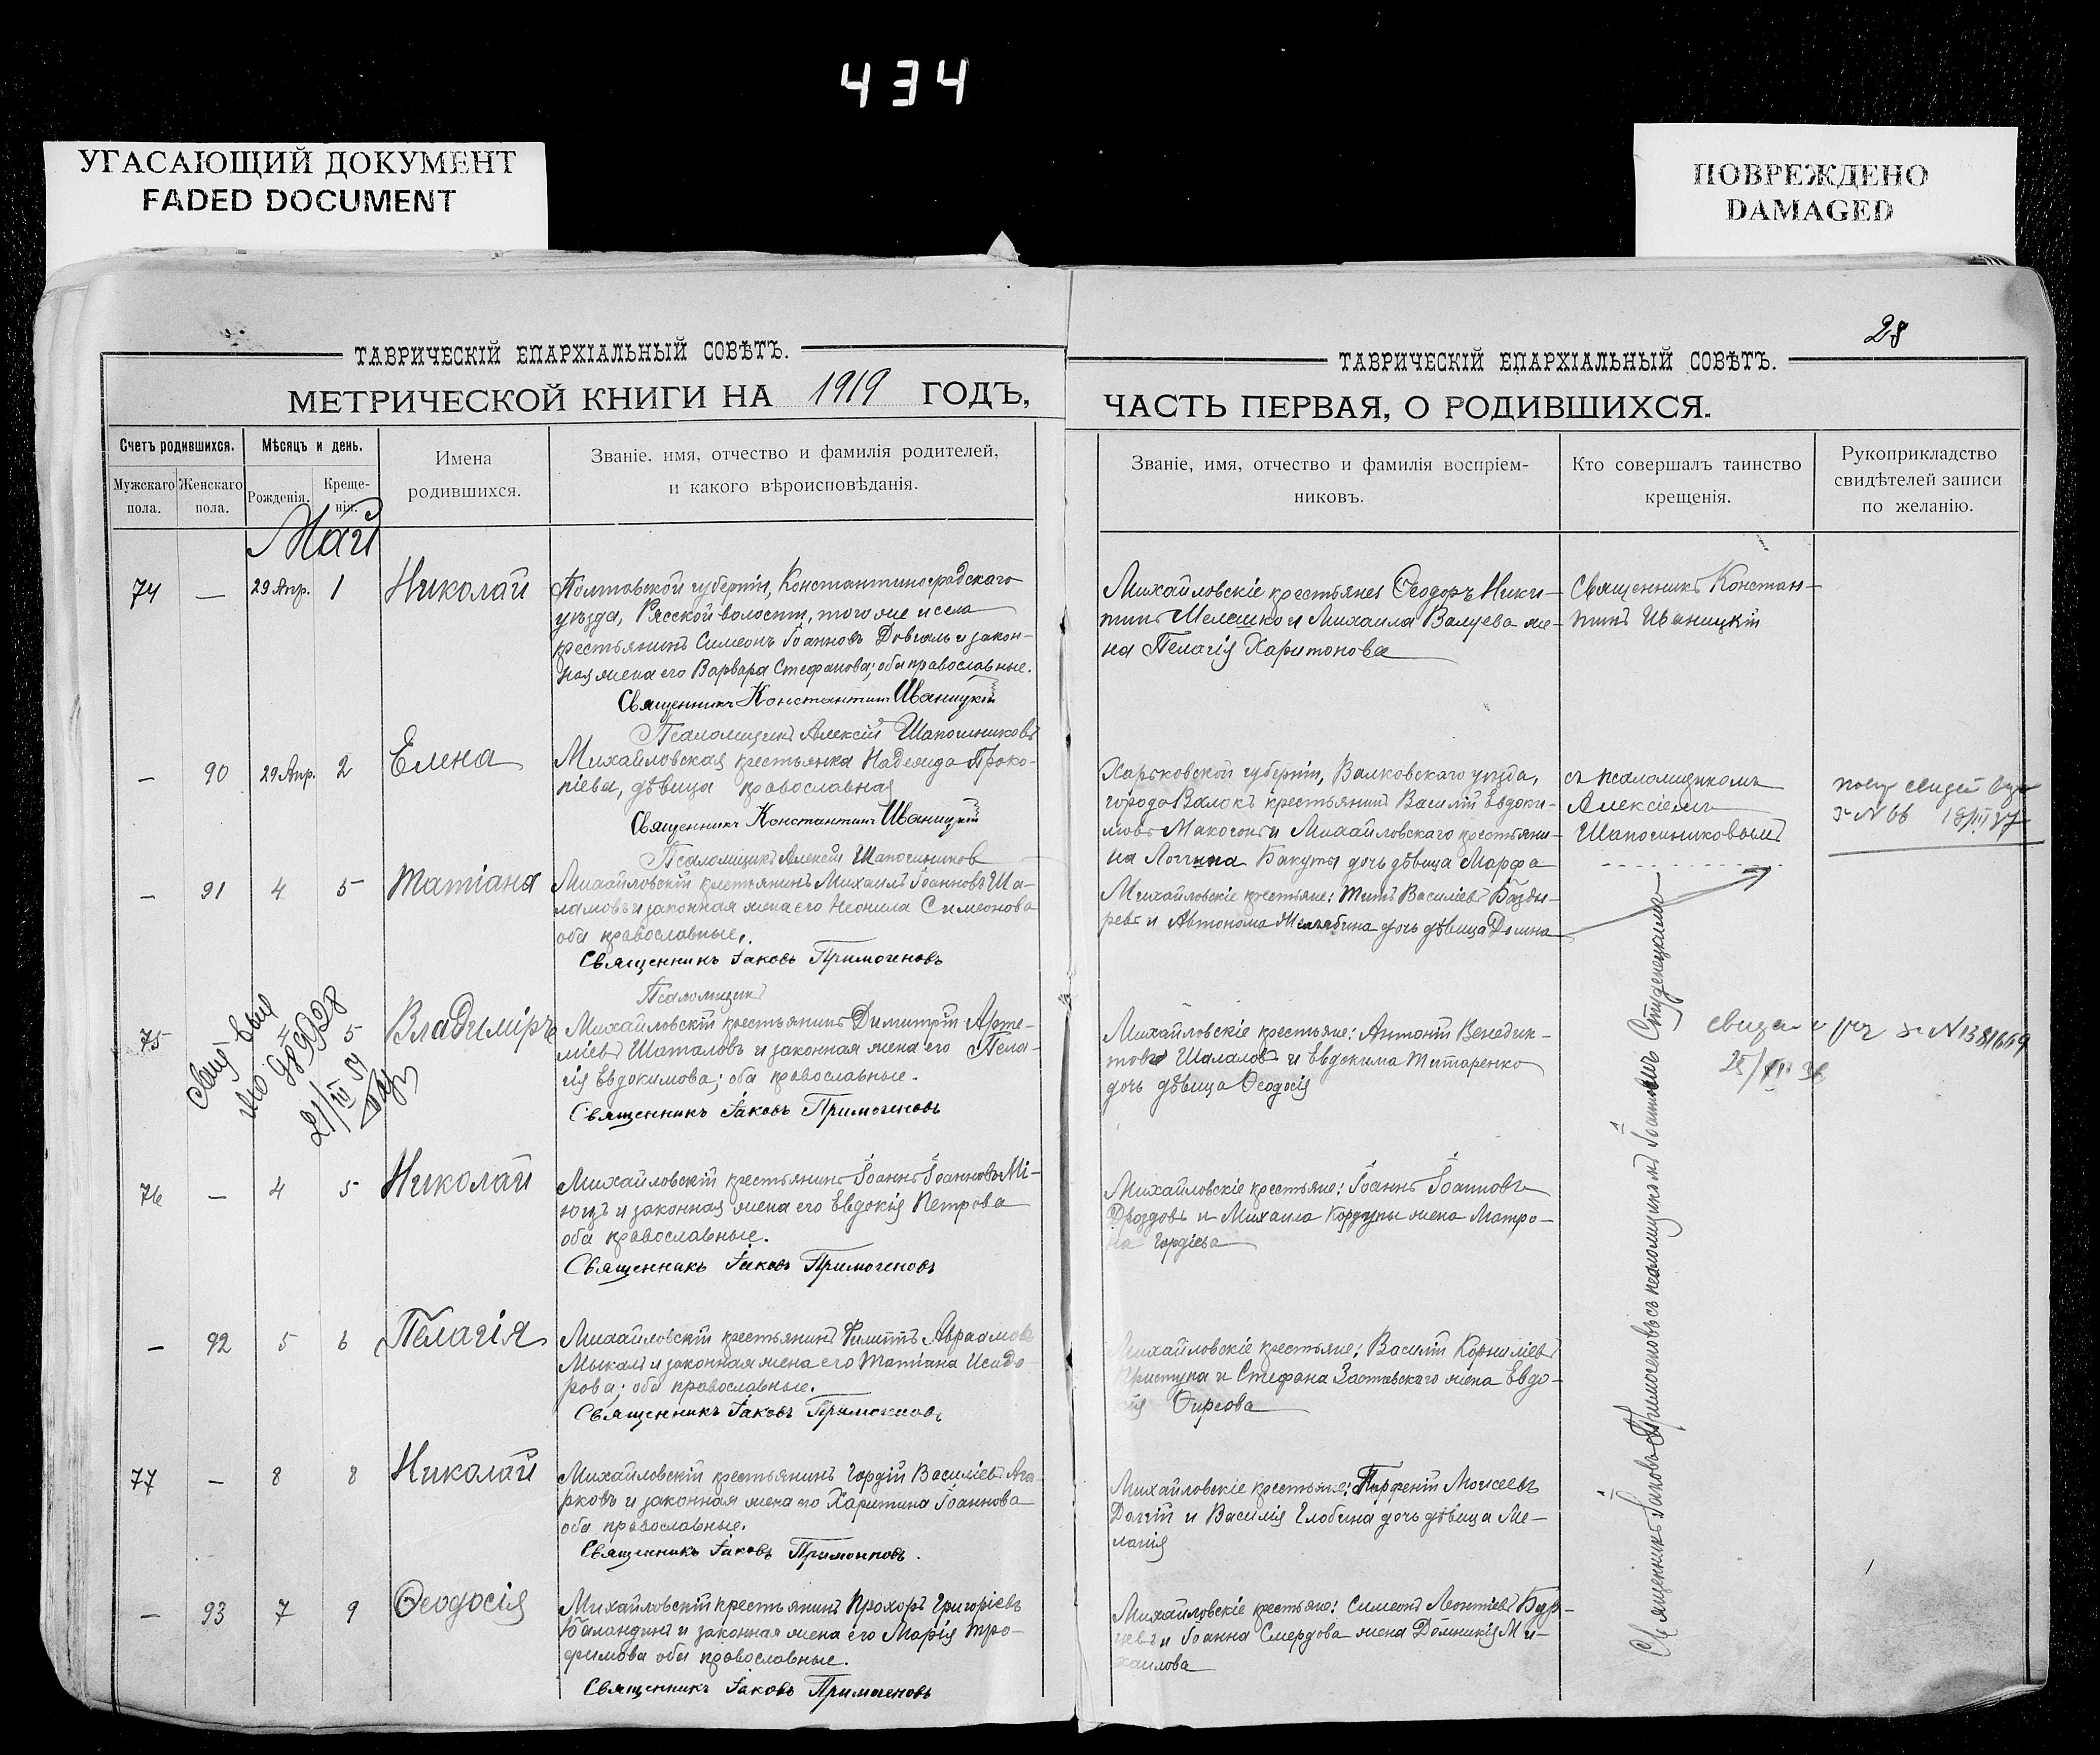 434
УГАСАЮЩИЙ ДОКУМЕНТ
FADED DOCUMENT
ПОВРЕЖДЕНО
DAMAGED
28
ТАВРИЧЕСКІЙ ЕПАРХІАЛЬНЫЙ СОВѢТЪ.
МЕТРИЧЕСКОЙ КНИГИ НА 1919 ГОДЪ,
Счетъ родившихся.
Мѣсяцъ и день.
Имена
родившихся.
Званіе, имя, отчество и фамилія родителей,
и какого вѣроисповѣданія.
Мужскаго
пола.
Женскаго
пола.
Рожденія.
Креще-
нія.
ТАВРИЧЕСКІЙ ЕПАРХІАЛЬНЫЙ СОВѢТЪ.
ЧАСТЬ ПЕРВАЯ, О РОДИВШИХСЯ.
Званіе, имя, отчество и фамилія воспріем-
никовъ.
Кто совершалъ таинство
крещенія.
Рукоприкладство
свидѣтелей записи
по желанію.
Май
74 — 29 Апр. 1 Николай
Полтавской губерніи, Константиноградскаго
уѣзда, Рясской волости, того же и села
крестьянинъ Симеонъ Іоанновъ Довгаль и закон-
ная жена его Варвара Стефанова; оба православные.
Священникъ Константинъ Иваницкій
Псаломщикъ Алексій Шапошниковъ
Михайловскіе крестьяне Ѳеодоръ Ники-
тинъ Шелашко и Михаила Валуева же-
на Пелагія Харитонова
Священникъ Констан-
тинъ Иваницкій
— 90 29 Апр. 2 Елена
Михайловская крестьянка Надежда Проко-
піева, дѣвица православная
Священникъ Константинъ Иваницкій
Псаломщикъ Алексій Шапошников
Харьковской губерніи, Валковскаго уѣзда,
города Валокъ крестьянинъ Василій Евдоки-
мовъ Макогонъ и Михайловскаго крестьяни-
на Логгина Бакуты дочь дѣвица Марфа
съ псаломщикомъ
Алексіемъ
Шапошниковымъ
— 91 4 5 Татіана
Михайловскій крестьянинъ Михаилъ Іоанновъ Ша-
ламовъ и законная жена его Неонила Симеонова
оба православные.
Священникъ Іаковъ Примогеновъ
Псаломщикъ
Михайловскіе крестьяне: Титъ Василіевъ Базды-
ревъ и Автонома дочь дѣвица Домна
75 5 Владиміръ
Михайловскій крестьянинъ Димитрій Арте-
міевъ Шаталовъ и законная жена его Пела-
гія Евдокимова; оба православные.
Священникъ Іаковъ Примогеновъ
Михайловскіе крестьяне: Антоній Венедик-
товъ Шаталовъ и Евдокима Титаренко
дочь дѣвица Ѳеодосія
76 — 4 5 Николай
Михайловскій крестьянинъ Іоаннъ Іоанновъ Мі-
юцъ и законная жена его Евдокія Петрова
оба православные.
Священникъ Іаковъ Примогеновъ
Михайловскіе крестьяне: Іоаннъ Іоанновъ
Дроздовъ и Михаила Кордупы жена Матро-
на Гордіева
— 92 5 6 Пелагія
Михайловскій крестьянинъ Филиппъ Авраамовъ
Мыкалъ и законная жена его Татіана Исидо-
рова; оба православные.
Священникъ Іаковъ Примогеновъ
Михайловскіе крестьяне: Василій Корниліевъ
Приступа и Стефана Заставскаго жена Евдо-
кія
77 — 8 8 Николай
Михайловскій крестьянинъ Гордій Василіевъ Ага-
рковъ и законная жена его Харитина Іоаннова
оба православные.
Священникъ Іаковъ Примогеновъ.
Михайловскіе крестьяне: Парфеній Моисеевъ
Долгій и Василія Глобина дочь дѣвица Ме-
ланія
— 93 7 9 Ѳеодосія
Михайловскій крестьянинъ Прохоръ Григоріевъ
Баландинъ и законная жена его Марія Тро-
фимова оба православные.
Священникъ Іаковъ Примогеновъ
Михайловскіе крестьяне: Симеонъ Леонтіевъ
и Іоанна Смердова жена Домникія Ми-
хаилова
Священникъ Іаковъ Примогеновъ съ псаломщикомъ Іоанномъ Студенецкимъ